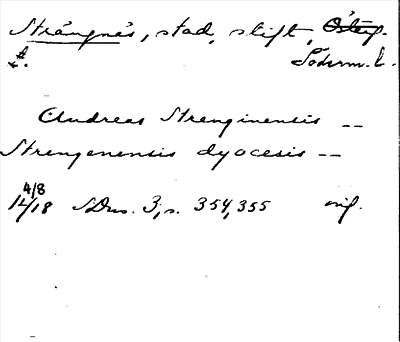 Strängnäs, stad, stift, Österg.
ff. Söderm. l.
Andreas Strenginensis --
Strengenensis dyocesis --
4/8
14/18 SDns. 3, s. 354, 355 orig.